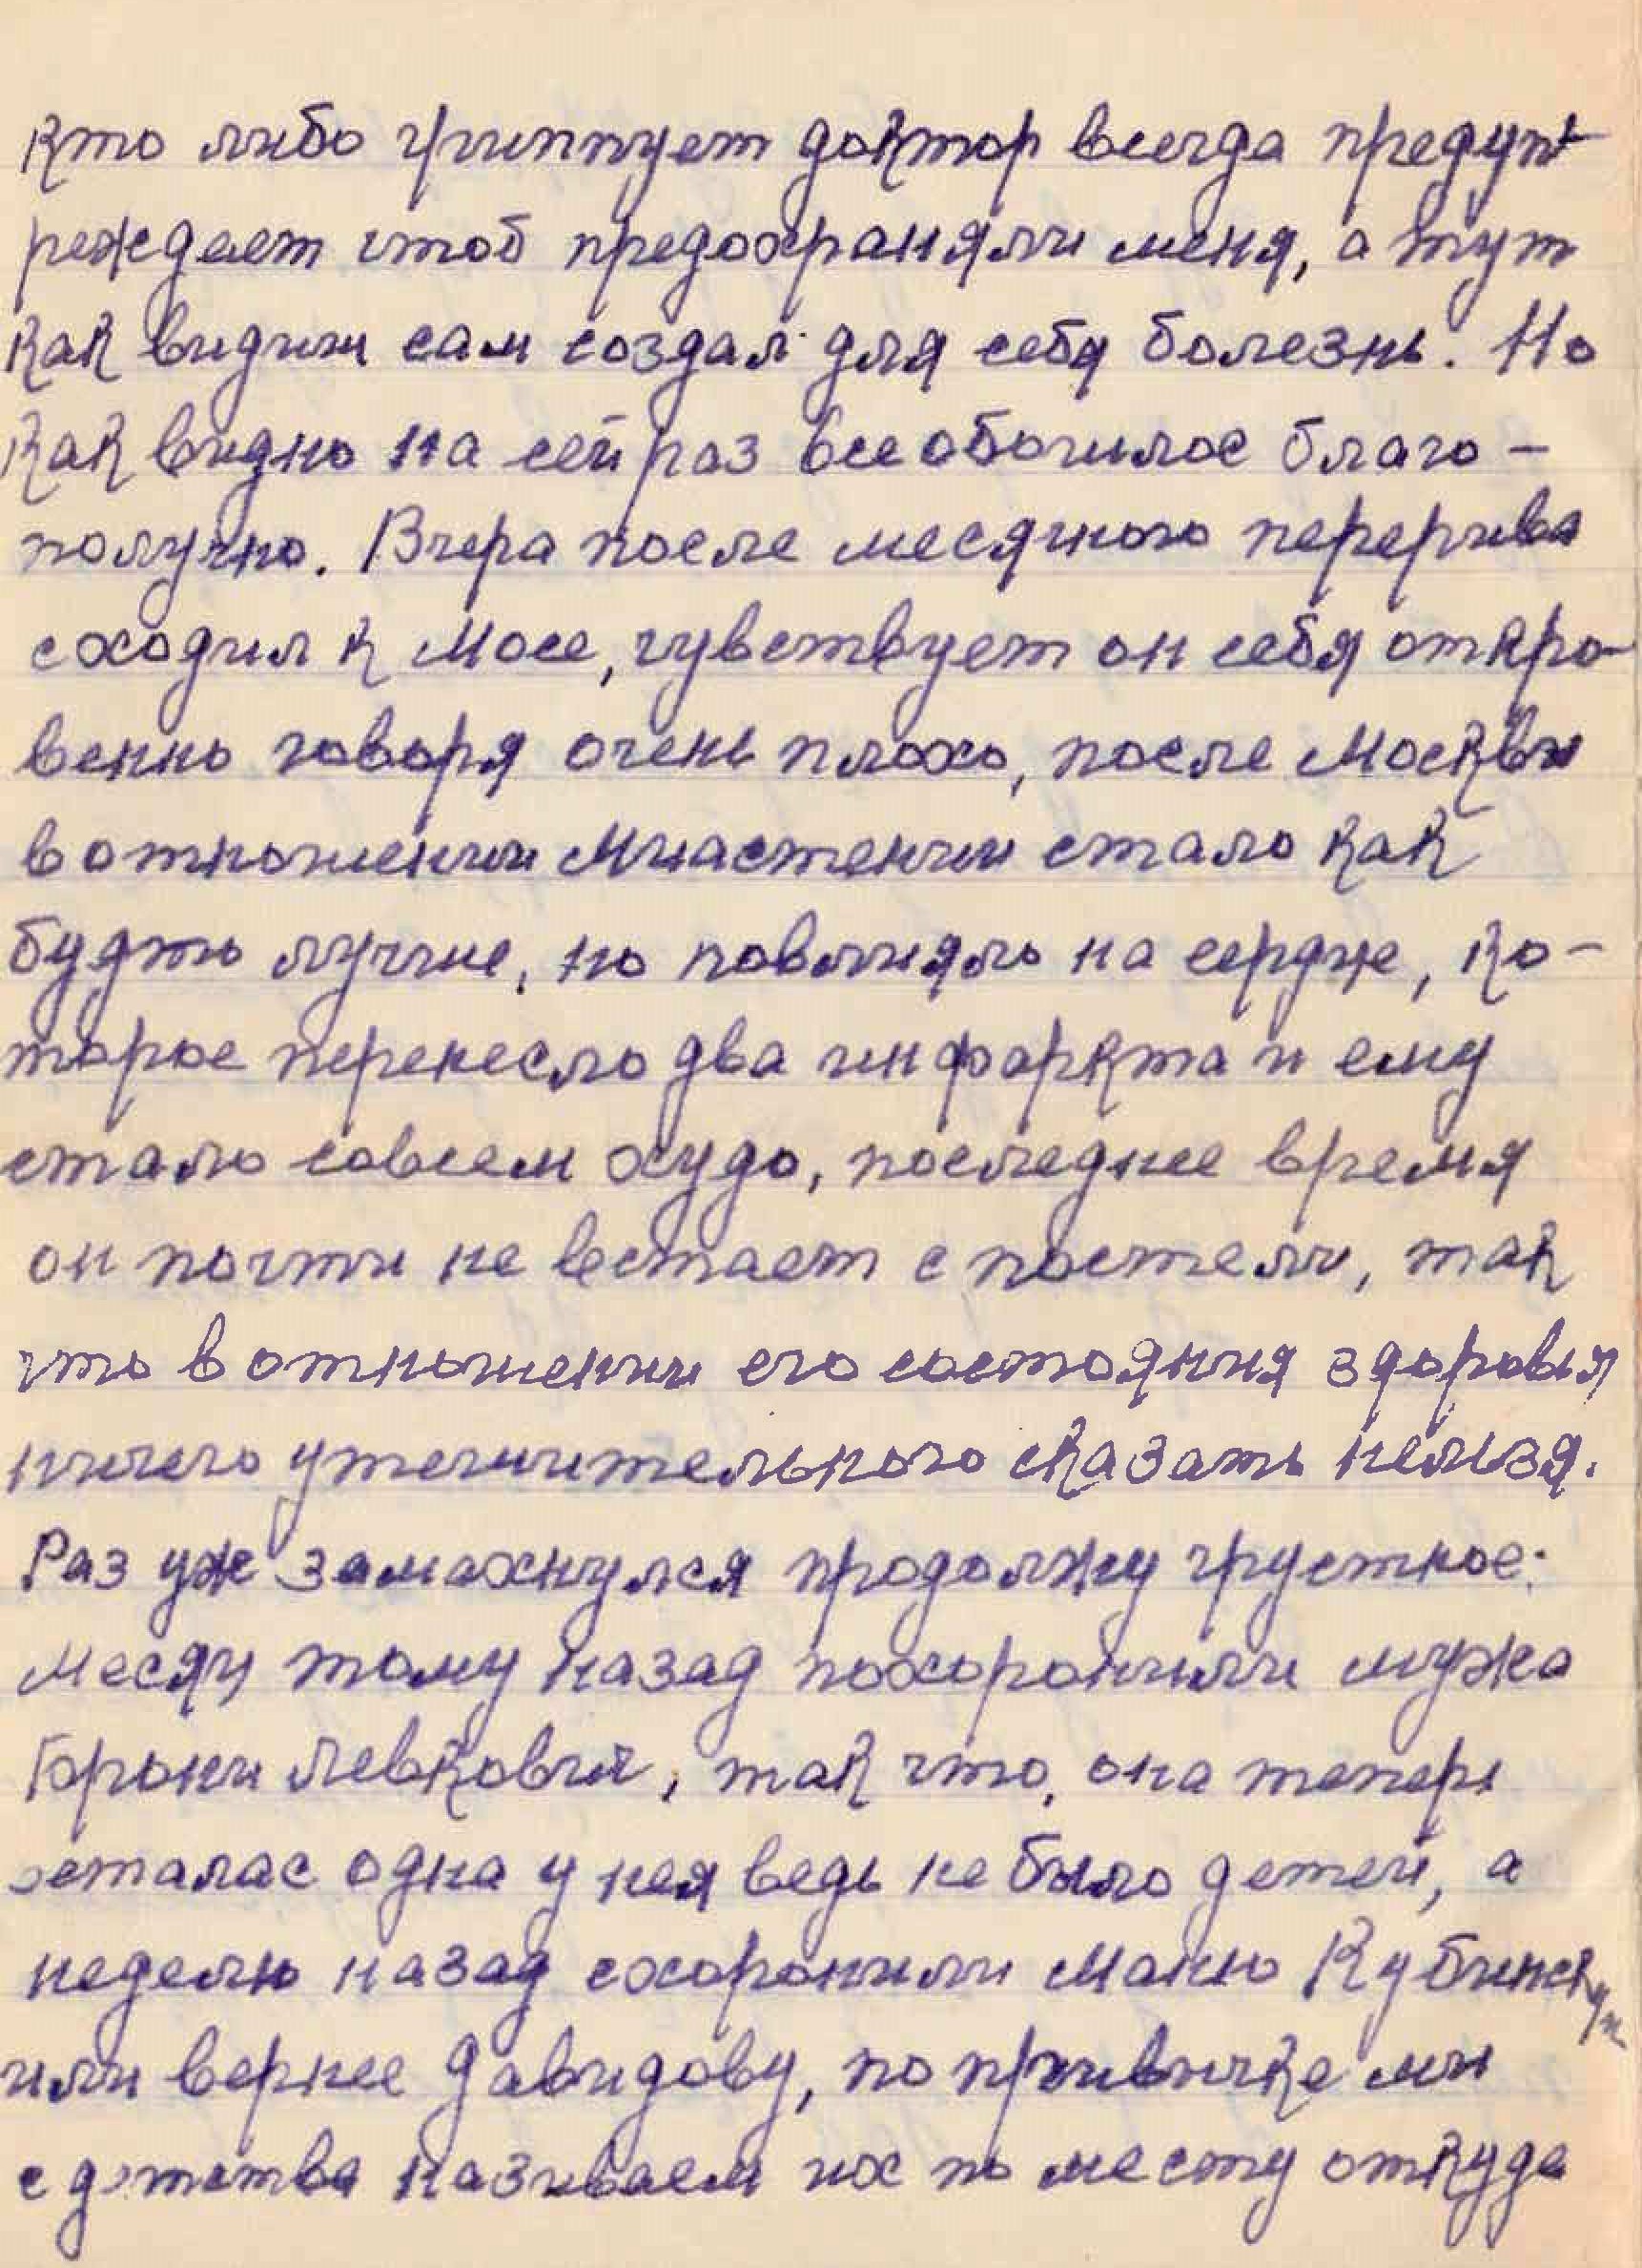 кто либо гриппует доктор всегда предуп-
реждает чтоб предохраняли меня, а тут
как видиш сам создал для себя болезнь. Но
как видно на сей раз все обошлось благо-
получно. Вчера после месячного перерыва
сходил к Мосе, чувствует он себя открo-
венно говоря очень плохо, после Москвы
в отношении Миастении стало как
будто лучше, но повлияло на сердце, ко-
торое перенесло два инфаркта и ему
стало совсем худо, последнее время
он почти не встает с постели, так
что в отношении его состояния здоровья
ничего утешительного сказать нельзя.
Раз уже замахнулся продолжу грустное:
Месяц тому назад похоронили мужа
Брони Левкович, так что, она теперь
осталас одна у нея ведь не было детей, а
неделю назад схоронили Маню Кубинскую
или вернее Давидову, по привычке мы
с детства называем их по месту откуда